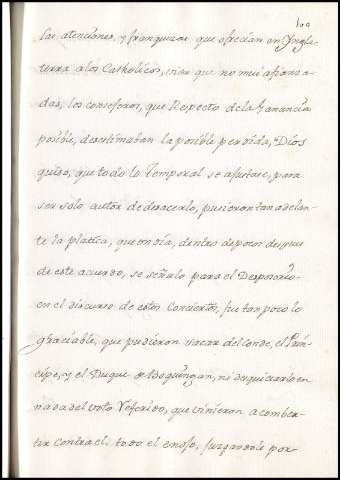 100
las atenciones, y franquezas que ofrecian en Ingla-
terra a los Catholicos, mas que no mui afianza-
das, los consejeros, que Respecto de la Ganancia
posible, desestimaban la posible perdida, Dios
quiso, que todo lo Temporal se ajustase, para
ser solo autor de desacerlo, pusieron tan adelan-
te la platica, que un dia, dentro de pocos despues
de este acuerdo, se señalo para el Desposorio
en el discurso de estos Conciertos, fue tan poco lo
graciable, que pudieron sacar del conde, el Prin-
cipe, y el Duque de Boquingan, ni de quietarle en
nada del voto Referido, que vinieron a conber-
tir contra el todo el enojo, juzgandole por